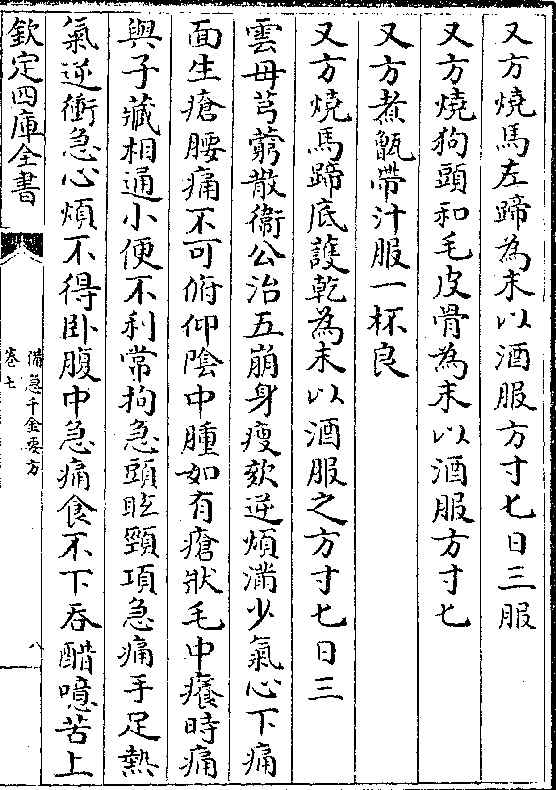 又方燒馬左蹄為末以酒服方寸匕日三服
又方燒狗頭和毛皮骨為末以酒服方寸匕
又方煮甑帶汁服一杯良
又方燒馬蹄底護乾為末以酒服之方寸匕日三
雲母芎藭散衛公治五崩身瘦欬逆煩滿少氣心下痛
面生瘡腰痛不可俯仰陰中腫如有瘡狀毛中癢時痛
與子藏相通小便不利常拘急頭眩頸項急痛手足熱
氣逆衝急心煩不得卧腹中急痛食不下吞醋噫苦上
欽定四庫全書
備急千金要方
卷七
八